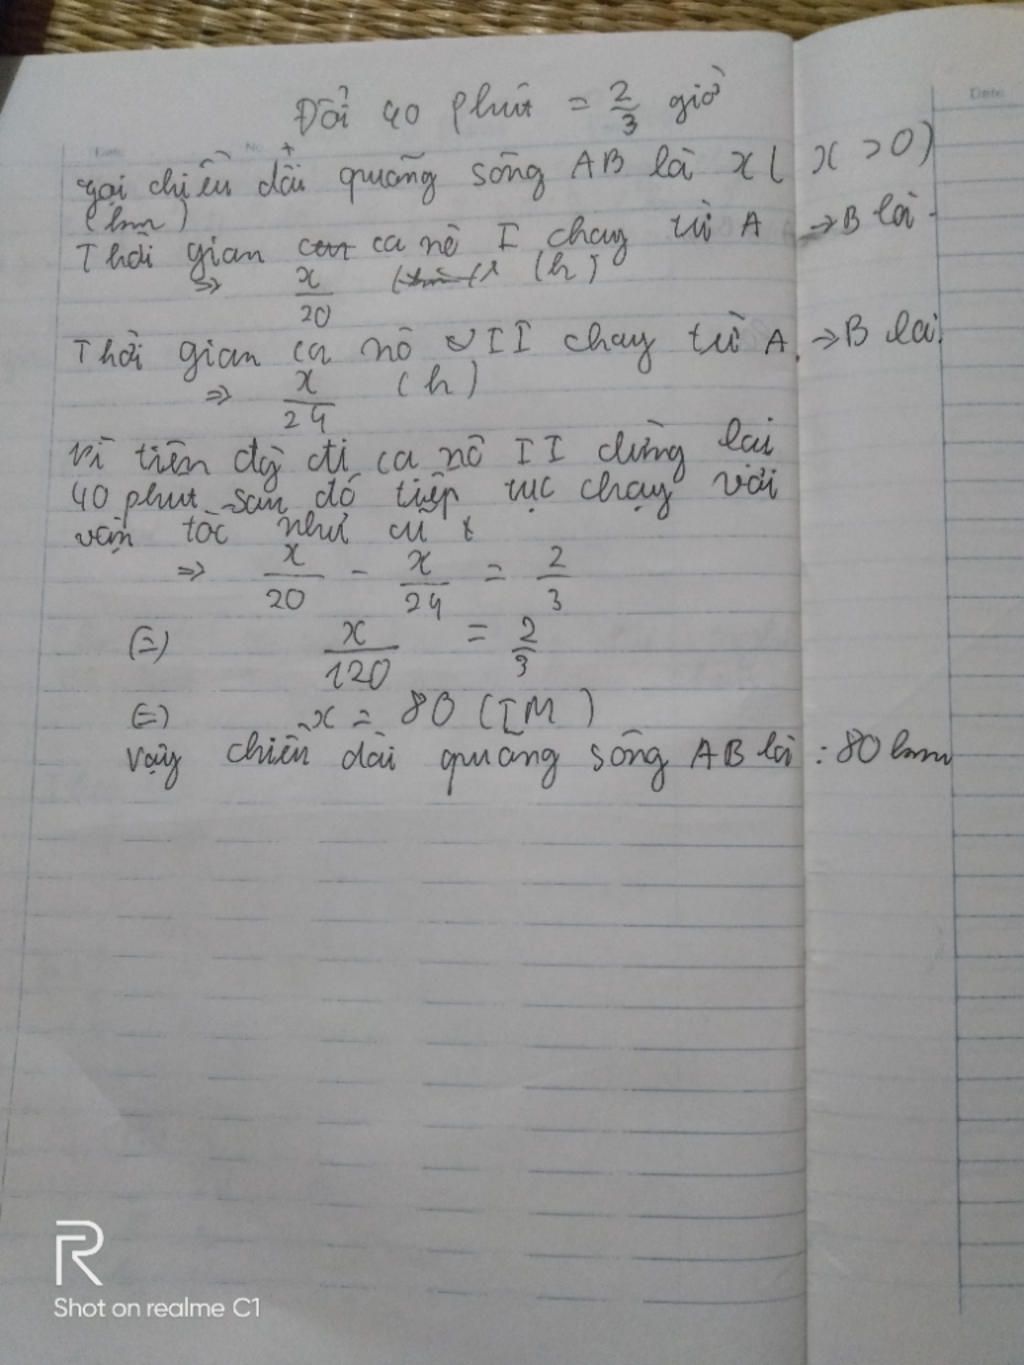 Đổi 40 phút = 2/3 giờ
gọi chiều dài quãng sông AB là x ( x > 0)
(km)
Thời gian ca nô I chạy từ A → B là
⇒ x/20 (h)
Thời gian ca nô II chạy từ A → B là
⇒ x/24 (h)
Vì trên đg đi ca nô II dừng lại
40 phút sau đó tiếp tục chạy với
vận tốc như cũ
⇒ x/20 - x/24 = 2/3
(=) x/120 = 2/3
(=) x = 80 (TM)
Vậy chiều dài quãng sông AB là : 80 km
Date
No.
Date
R
Shot on realme C1